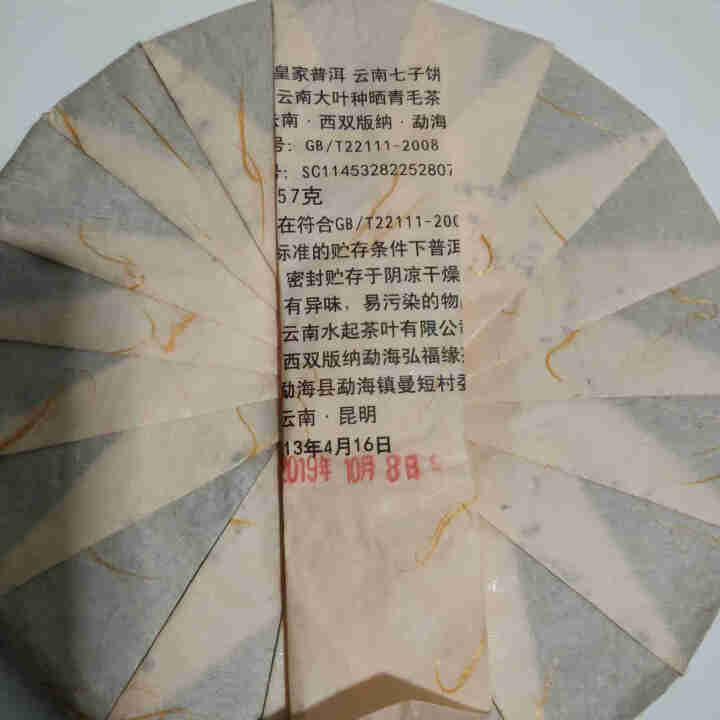 皇家普洱 云南七子饼
云南大叶种晒青毛茶
云南·西双版纳·勐海
号: GB/T22111-2008
号: SC11453282252807
57克
在符合GB/T22111-200
标准的贮存条件下普洱
密封贮存于阴凉干燥
有异味，易污染的物
云南水起茶叶有限公司
西双版纳勐海弘福缘
勐海县勐海镇曼短村委
云南·昆明
13年4月16日
2019年 10月 8日